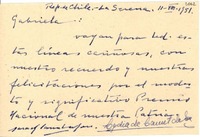 Rep. de Chile. La Serena. 11-VIII-1951.
Gabriela:
vayan para Ud. es-
tas líneas cariñosas, con
nuestro recuerdo y nuestras
felicitaciones por el mere-
cido y significativo Premio
Nacional de nuestra Patria,